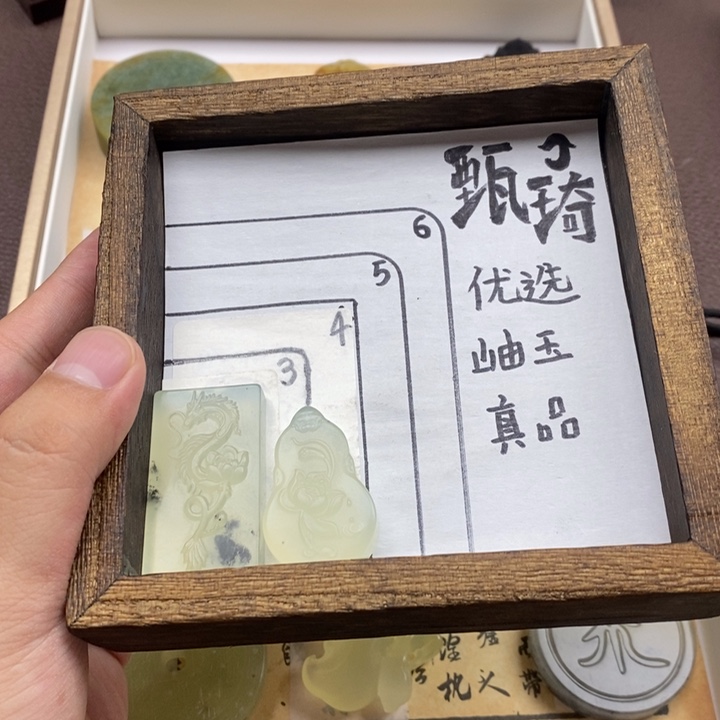 甄琦
优选
岫玉
真品
6
5
4
3
枕头
带